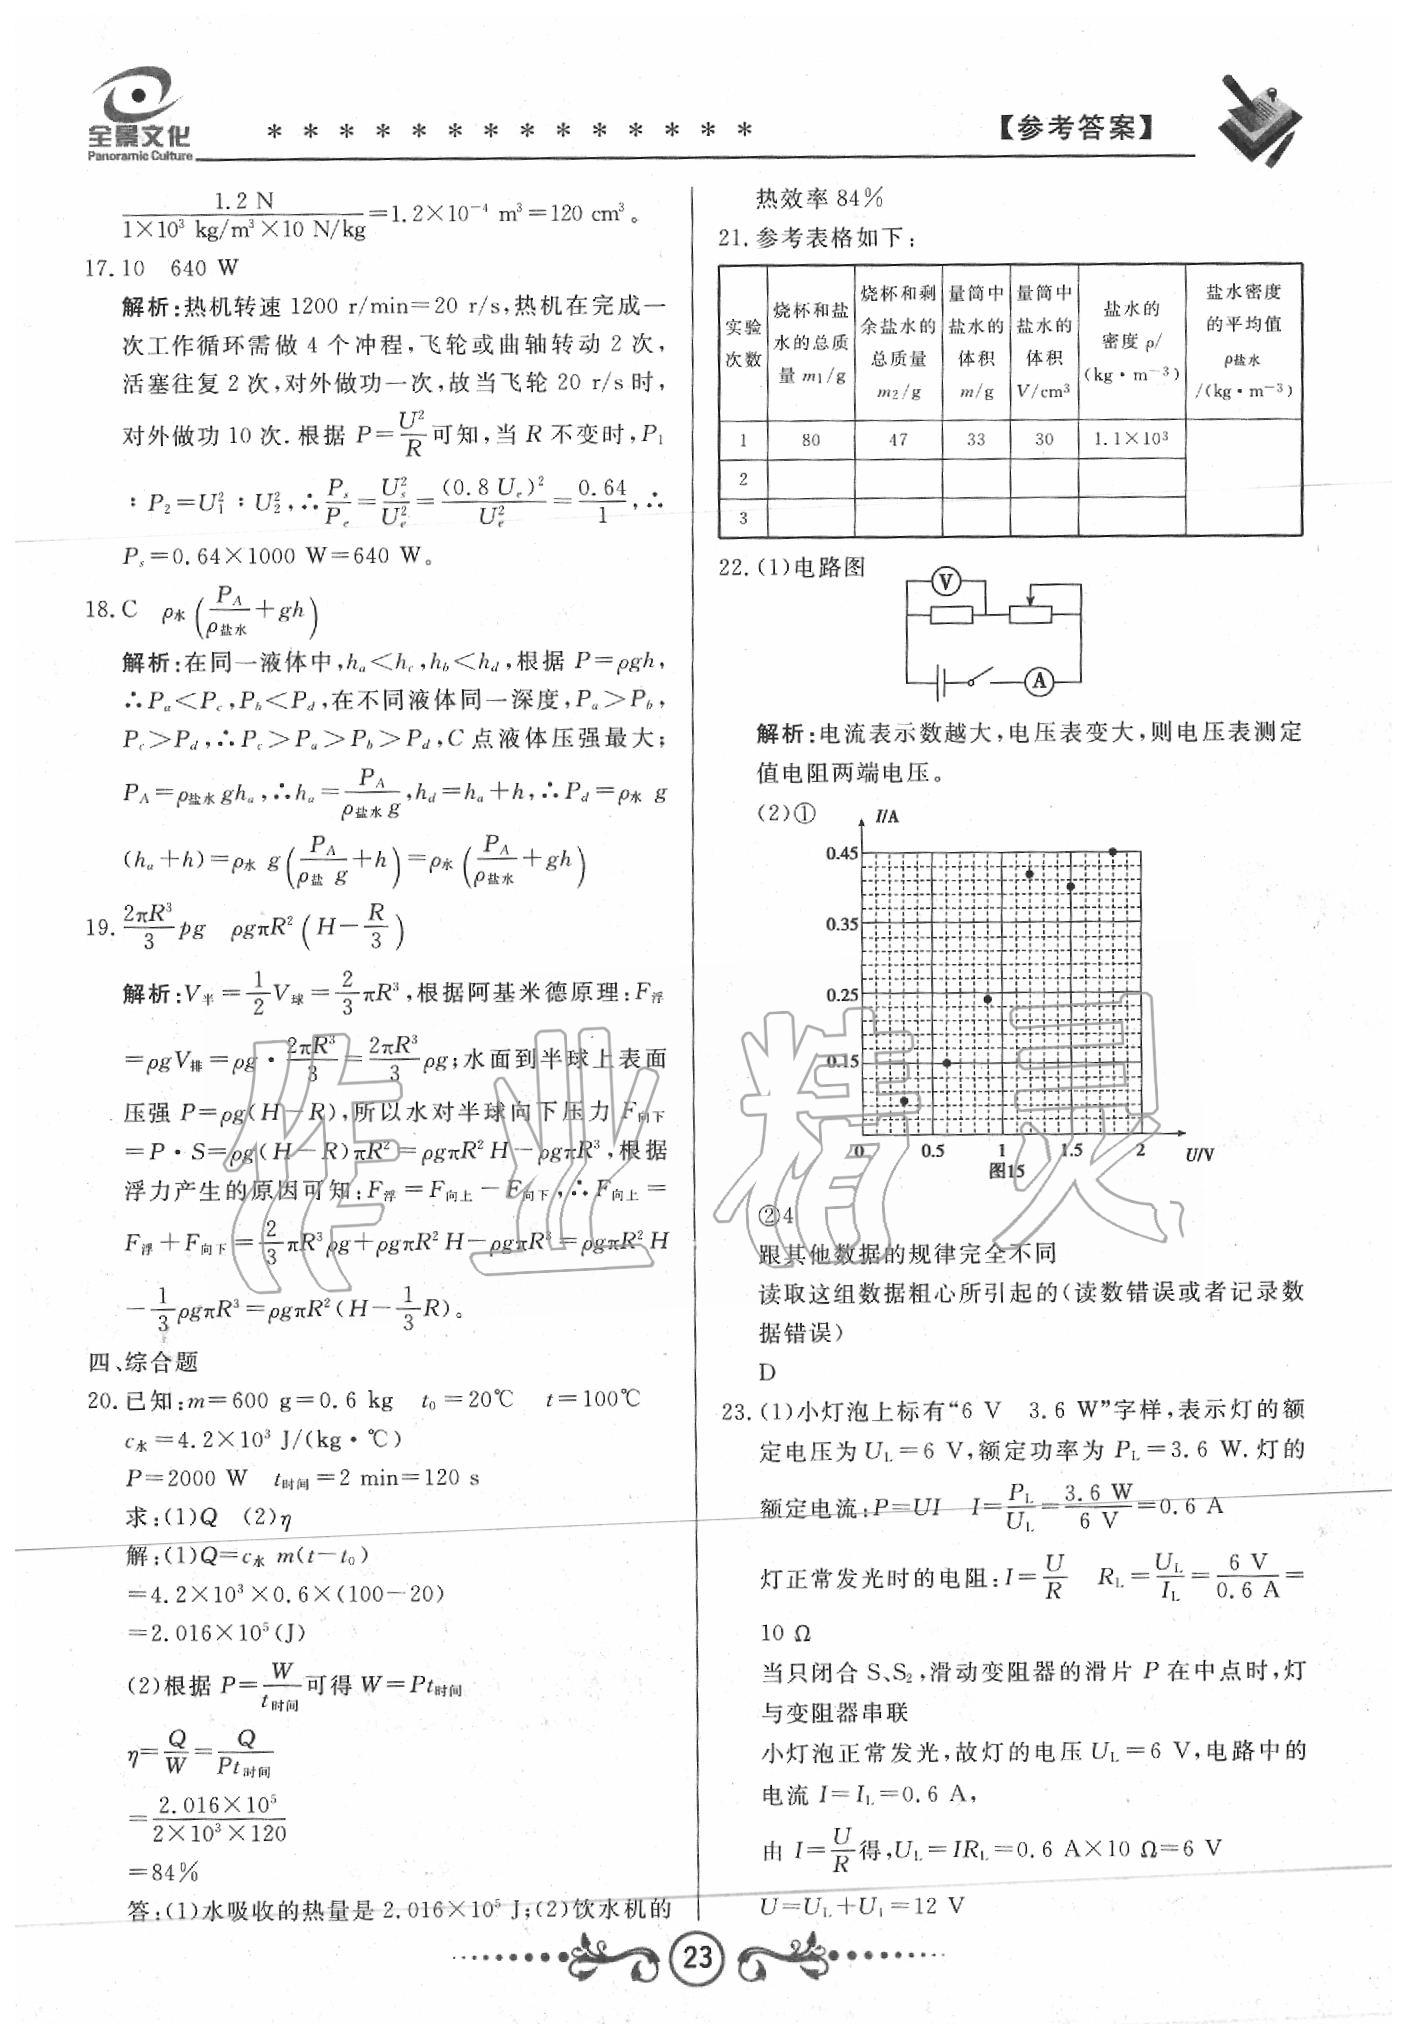 全景文化
Panoramic Culture
* * * * * * * * * * * * * *
【参考答案】
1.2 N/(1×10³ kg/m³×10 N/kg)=1.2×10⁻⁴ m³=120 cm³。
17.10　640 W
解析:热机转速 1200 r/min=20 r/s,热机在完成一
次工作循环需做 4 个冲程,飞轮或曲轴转动 2 次,
活塞往复 2 次,对外做功一次,故当飞轮 20 r/s 时,
对外做功 10 次.根据 P=U²/R可知,当 R 不变时,P₁
∶P₂=U₁²∶U₂²,∴Pₛ/Pₑ=Uₛ²/Uₑ²=(0.8 Uₑ)²/Uₑ²=0.64/1,∴
Pₛ=0.64×1000 W=640 W。
18.C　ρ水(P_A/ρ盐水+gh)
解析:在同一液体中,hₐ<h_c,h_b<h_d,根据 P=ρgh,
∴Pₐ<P_c,P_b<P_d,在不同液体同一深度,Pₐ>P_b,
P_c>P_d,∴P_c>Pₐ>P_b>P_d,C 点液体压强最大;
P_A=ρ盐水 ghₐ,∴hₐ=P_A/(ρ盐水 g),h_d=hₐ+h,∴P_d=ρ水 g
(hₐ+h)=ρ水 g(P_A/(ρ盐 g)+h)=ρ水(P_A/ρ盐水+gh)
19.(2πR³/3)ρg　ρgπR²(H−R/3)
解析:V半=(1/2)V球=(2/3)πR³,根据阿基米德原理:F浮
=ρgV排=ρg·2πR³/3=(2πR³/3)ρg;水面到半球上表面
压强 P=ρg(H−R),所以水对半球向下压力 F向下
=P·S=ρg(H−R)πR²=ρgπR²H−ρgπR³,根据
浮力产生的原因可知:F浮=F向上−F向下,∴F向上=
F浮+F向下=(2/3)πR³ρg+ρgπR²H−ρgπR³=ρgπR²H
−(1/3)ρgπR³=ρgπR²(H−(1/3)R)。
四、综合题
20.已知:m=600 g=0.6 kg　t₀=20℃　t=100℃
c水=4.2×10³ J/(kg·℃)
P=2000 W　t时间=2 min=120 s
求:(1)Q　(2)η
解:(1)Q=c水 m(t−t₀)
=4.2×10³×0.6×(100−20)
=2.016×10⁵(J)
(2)根据 P=W/t时间可得 W=Pt时间
η=Q/W=Q/Pt时间
=2.016×10⁵/(2×10³×120)
=84%
答:(1)水吸收的热量是 2.016×10⁵ J;(2)饮水机的
热效率 84%
21.参考表格如下:
实验次数　烧杯和盐水的总质量 m₁/g　烧杯和剩余盐水的总质量 m₂/g　量筒中盐水的体积 m/g　量筒中盐水的体积 V/cm³　盐水的密度 ρ/(kg·m⁻³)　盐水密度的平均值 ρ盐水/(kg·m⁻³)
1　80　47　33　30　1.1×10³
2
3
22.(1)电路图
V
A
解析:电流表示数越大,电压表变大,则电压表测定
值电阻两端电压。
(2)①
I/A
0.45
0.35
0.25
0.15
0　0.5　1　1.5　2　U/V
图15
②4
跟其他数据的规律完全不同
读取这组数据粗心所引起的(读数错误或者记录数
据错误)
D
23.(1)小灯泡上标有“6 V　3.6 W”字样,表示灯的额
定电压为 U_L=6 V,额定功率为 P_L=3.6 W.灯的
额定电流:P=UI　I=P_L/U_L=3.6 W/6 V=0.6 A
灯正常发光时的电阻:I=U/R　R_L=U_L/I_L=6 V/0.6 A=
10 Ω
当只闭合 S、S₂,滑动变阻器的滑片 P 在中点时,灯
与变阻器串联
小灯泡正常发光,故灯的电压 U_L=6 V,电路中的
电流 I=I_L=0.6 A,
由 I=U/R得,U_L=IR_L=0.6 A×10 Ω=6 V
U=U_L+U₁=12 V
23
作业精灵